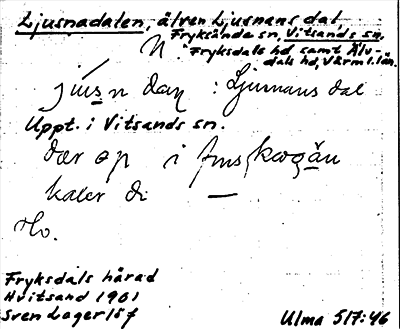 Ljusnadalen, älven Ljusnans dal,
Fryksände sn, Vitsands sn,
N. Fryksdals hd samt Älv-
dals hd, Värml. län.
: Ljusnans dal
Uppt. i Vitsands sn.
där op i finskogän
kaler di —
Ho.
Fryksdals härad
Hvitsand 1901
Sven Lagerlöf
Ulma 517:46